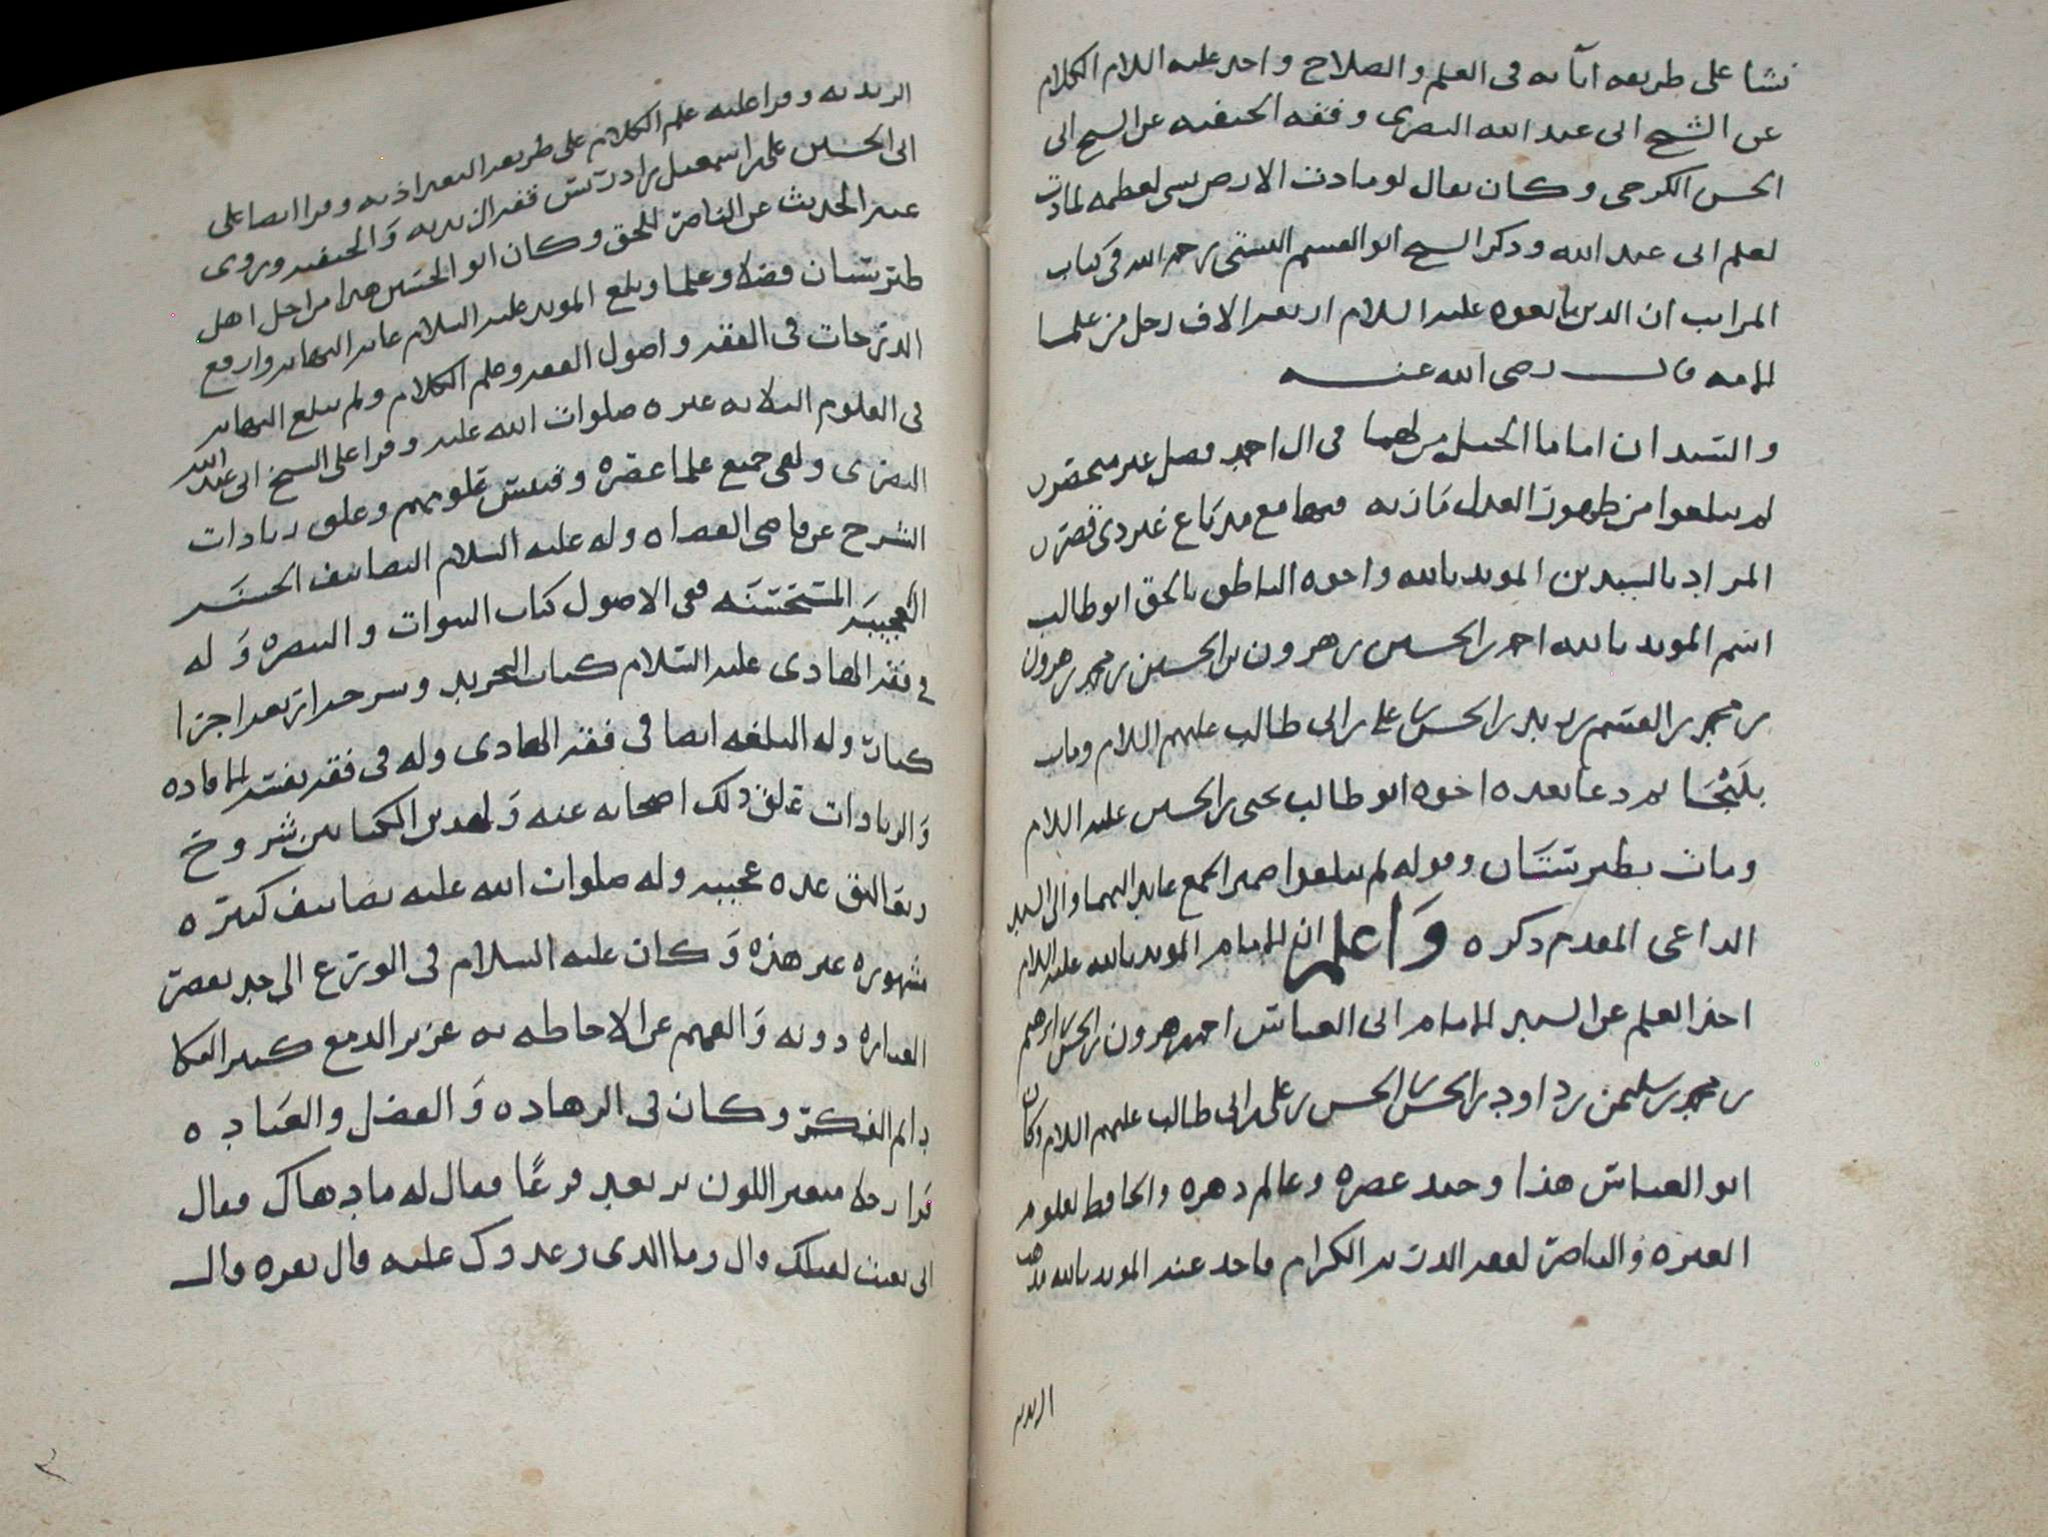 نشا على طريقه ابآيه فى العلم والصلاح واخد عليه السلام الكلام
عن الشيخ ابى عبد الله البصرى وفقه الحنفيه عن الشيخ ابى
الحسن الكرخى وكان يقال لو مادت الارض بشى لعظمه لمادت
لعلم ابى عبد الله وذكر الشيخ ابو القسم البستى رحمه الله فى كتاب
المراتب ان الذين بايعوه عليه السلام اربعه الاف رجل من علما
الامه قال رضى الله عنه
والسيدان اماما الجيل من لهما فى ال احمد فضل غير منحصر
لم يبلغوا من ظهور العدل مارب فيها مع مد باع غير ذى قصر
المراد بالسيدين المويد بالله واخوه الناطق بالحق ابو طالب
اسم المويد بالله احمد بن الحسين بن هرون بن الحسين بن محمد بن هرون
بن محمد بن القسم بن زيد بن الحسن بن على بن ابى طالب عليهم السلام ومات
بلنجا ثم دعا بعده اخوه ابو طالب يحيى بن الحسين عليه السلام
ومات بطبرستان وقوله لم يبلغوا ضمير الجمع عايد اليهما والى السيد
الداعى المقدم ذكره واعلم ان الامام المويد بالله عليه السلام
اخذ العلم عن السيد الامام ابى العباس احمد بن هرون بن الحسن بن ابرهيم
بن محمد بن سليمن بن داود بن الحسن بن الحسن بن على بن ابى طالب عليهم السلام وكان
ابو العباس هذا وحيد عصره وعالم دهره والحافظ لعلوم
العتره والناصر لفقه الذريه الكرام فاخد عنه المويد بالله مذهب
الزيديه
الزيديه وقرا عليه علم الكلام على طريقه البغداذيه وقرا ايضا على
ابى الحسين على بن اسمعيل بن ادريس فقه الزيديه والحنفيه وروى
عنه الحديث عن الناصر للحق وكان ابو الحسين هذا من اجل اهل
طبرستان فضلا وعلما وبلغ المويد عليه السلام غايه النهايه وارفع
الدرجات فى الفقه واصول الفقه وعلم الكلام ولم يبلغ النهايه
فى العلوم الثلاثه غيره صلوات الله عليه وقرا على الشيخ ابى عبد الله
البصرى ولقى جميع علما عصره وفتش علومهم وعلق زيادات
الشرح عن قاضى القضاه وله عليه السلام التصانيف الحسنه
العجيبه المستحسنه ففى الاصول كتاب النبوات والتبصره وله
فى فقه الهادى عليه السلام كتاب التجريد وشرحه اربعه اجزا
كبار وله البلغه ايضا فى فقه الهادى وله فى فقه نفسه الافاده
والزيادات علق ذلك اصحابه عنه ولهذين الكتابين شروح
وتعاليق عده عجيبه وله صلوات الله عليه تصانيف كثيره
مشهوره غير هذه وكان عليه السلام فى الورع الى حد تقصر
العباره دونه والفهم عن الاحاطه به غزير الدمع كثير البكا
دايم الفكر وكان فى الزهاده والفضل والعباده
فرا رجلا متغير اللون يرتعد فزعا فقال له ما دهاك فقال
انى بعثت لقتلك قال وما الذى وعدوك عليه قال بقره قال